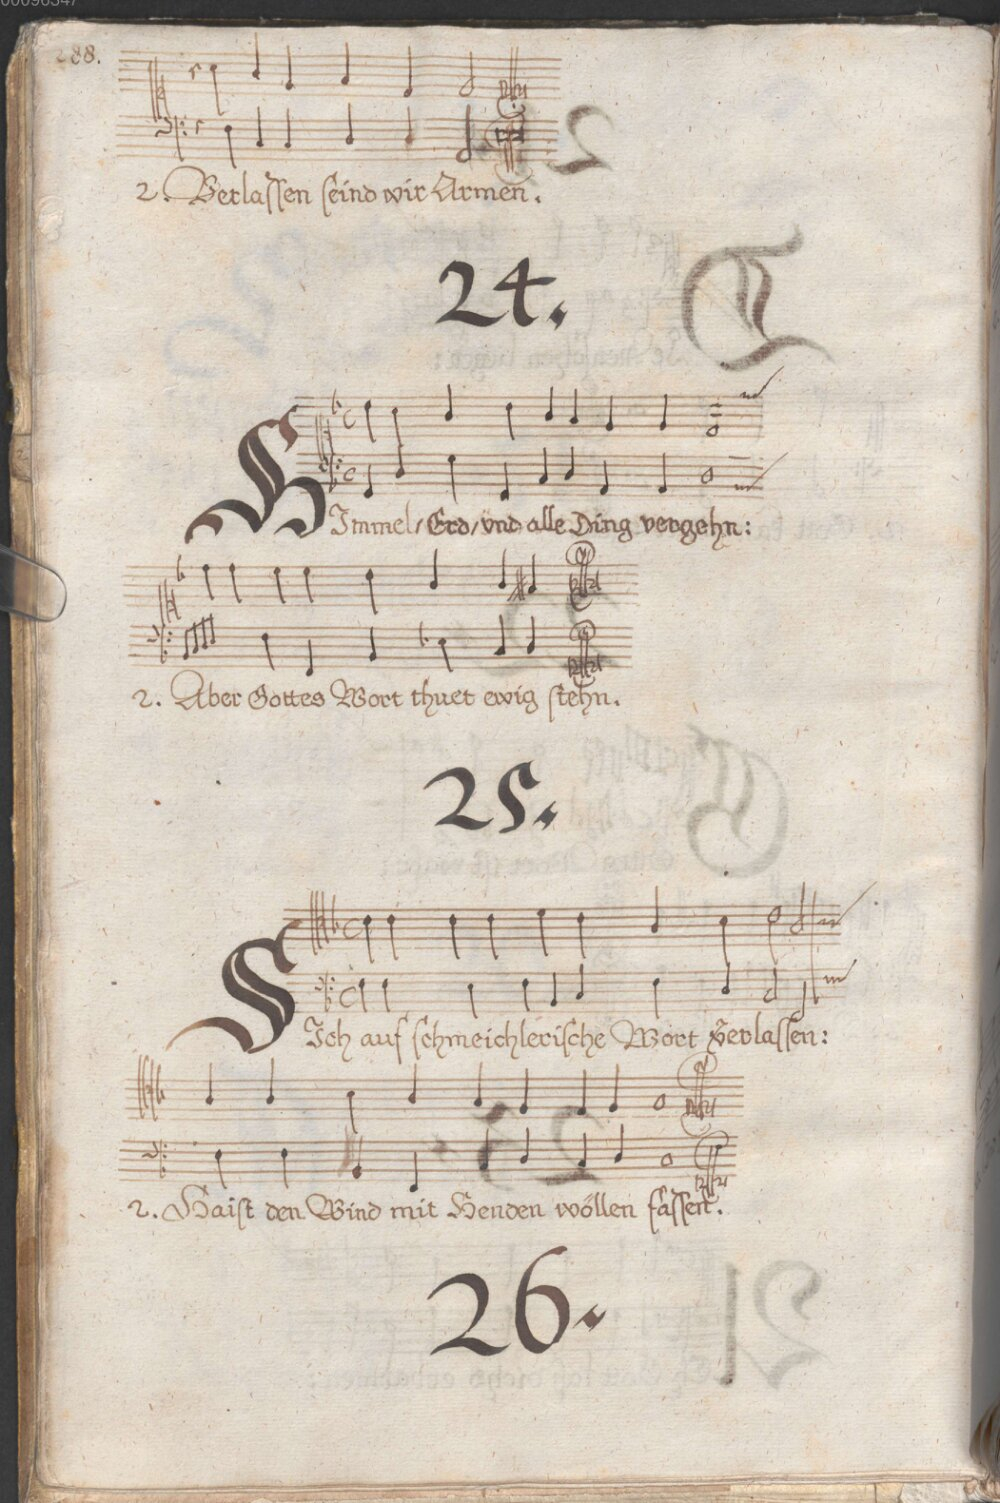 00096347
288.
2. Verlassen seind wir Armen.
24.
HImmel/ Erd/ vnd alle Ding vergehn:
2. Aber Gottes Wort thuet ewig stehn.
25.
SIch auf schmeichlerische Wort verlassen:
2. Haist den Wind mit Henden wöllen fassen.
26.